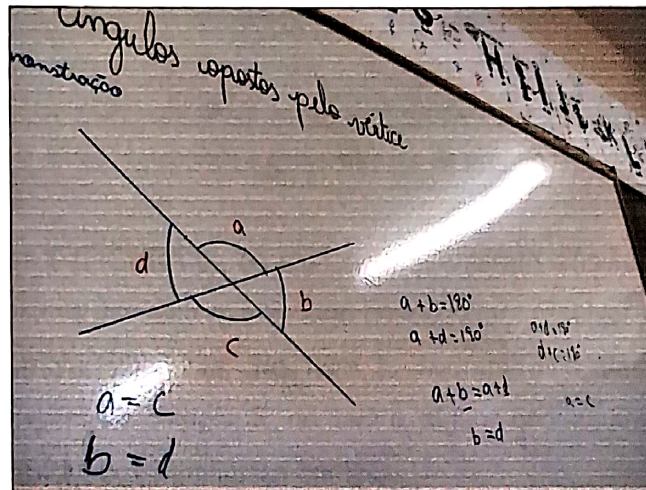 Ângulos opostos pelo vértice
monstração
a
d
b
c
a + b = 180°
a + d = 180°
a + b = a + d
b = d
a+d=180°
d+c=180°
a=c
a = c
b = d